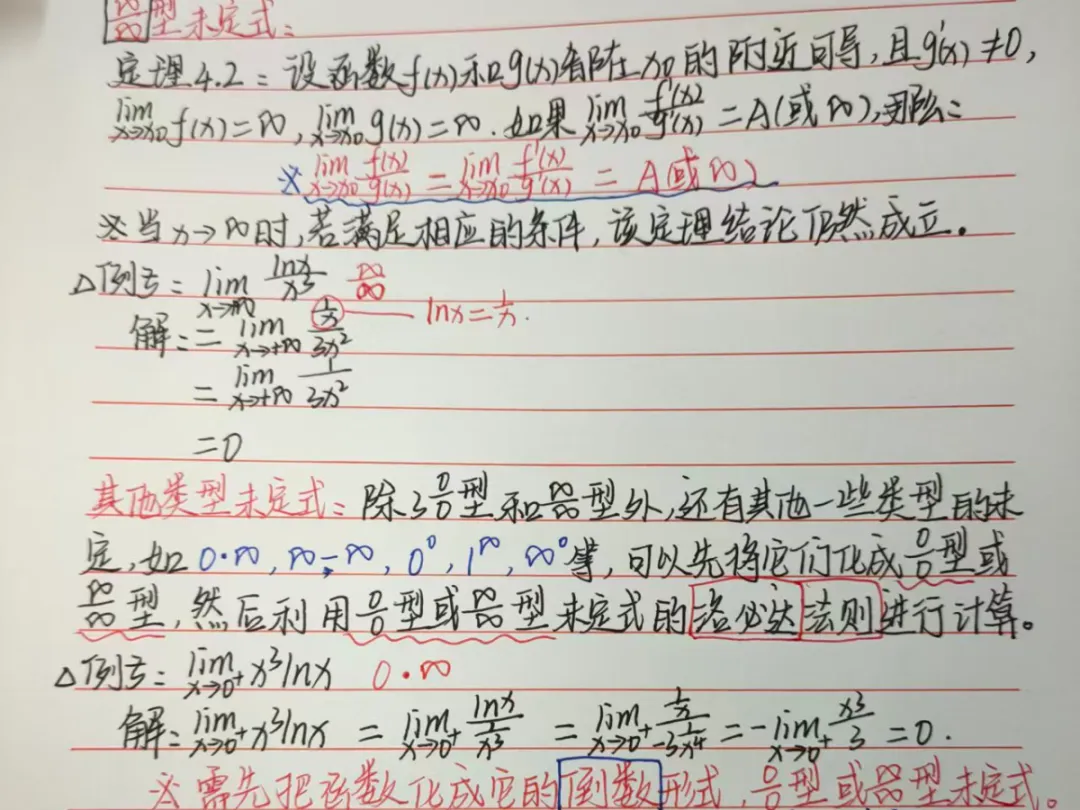 ∞/∞型未定式:
定理4.2:设函数f(x)和g(x)都在x0的附近可导,且g'(x)≠0,
lim x→x0 f(x)=∞, lim x→x0 g(x)=∞. 如果 lim x→x0 f'(x)/g'(x) =A(或∞),那么:
※ lim x→x0 f(x)/g(x) = lim x→x0 f'(x)/g'(x) = A(或∞)
※当x→∞时,若满足相应的条件,该定理结论仍然成立。
△例: lim x→+∞ lnx/x³ ∞/∞
解:= lim x→+∞ (1/x)/3x² lnx=1/x.
= lim x→+∞ 1/3x²
=0
其他类型未定式:除了0/0型和∞/∞型外,还有其他一些类型的未
定,如0·∞,∞-∞,0⁰,1^∞,∞⁰等,可以先将它们化成0/0型或
∞/∞型,然后利用0/0型或∞/∞型未定式的洛必达法则进行计算。
△例: lim x→0⁺ x³lnx 0·∞
解: lim x→0⁺ x³lnx = lim x→0⁺ lnx/(1/x³) = lim x→0⁺ (1/x)/(-3x⁴) = -lim x→0⁺ x³/3 =0.
※需先把函数化成它的倒数形式,0/0型或∞/∞型未定式。